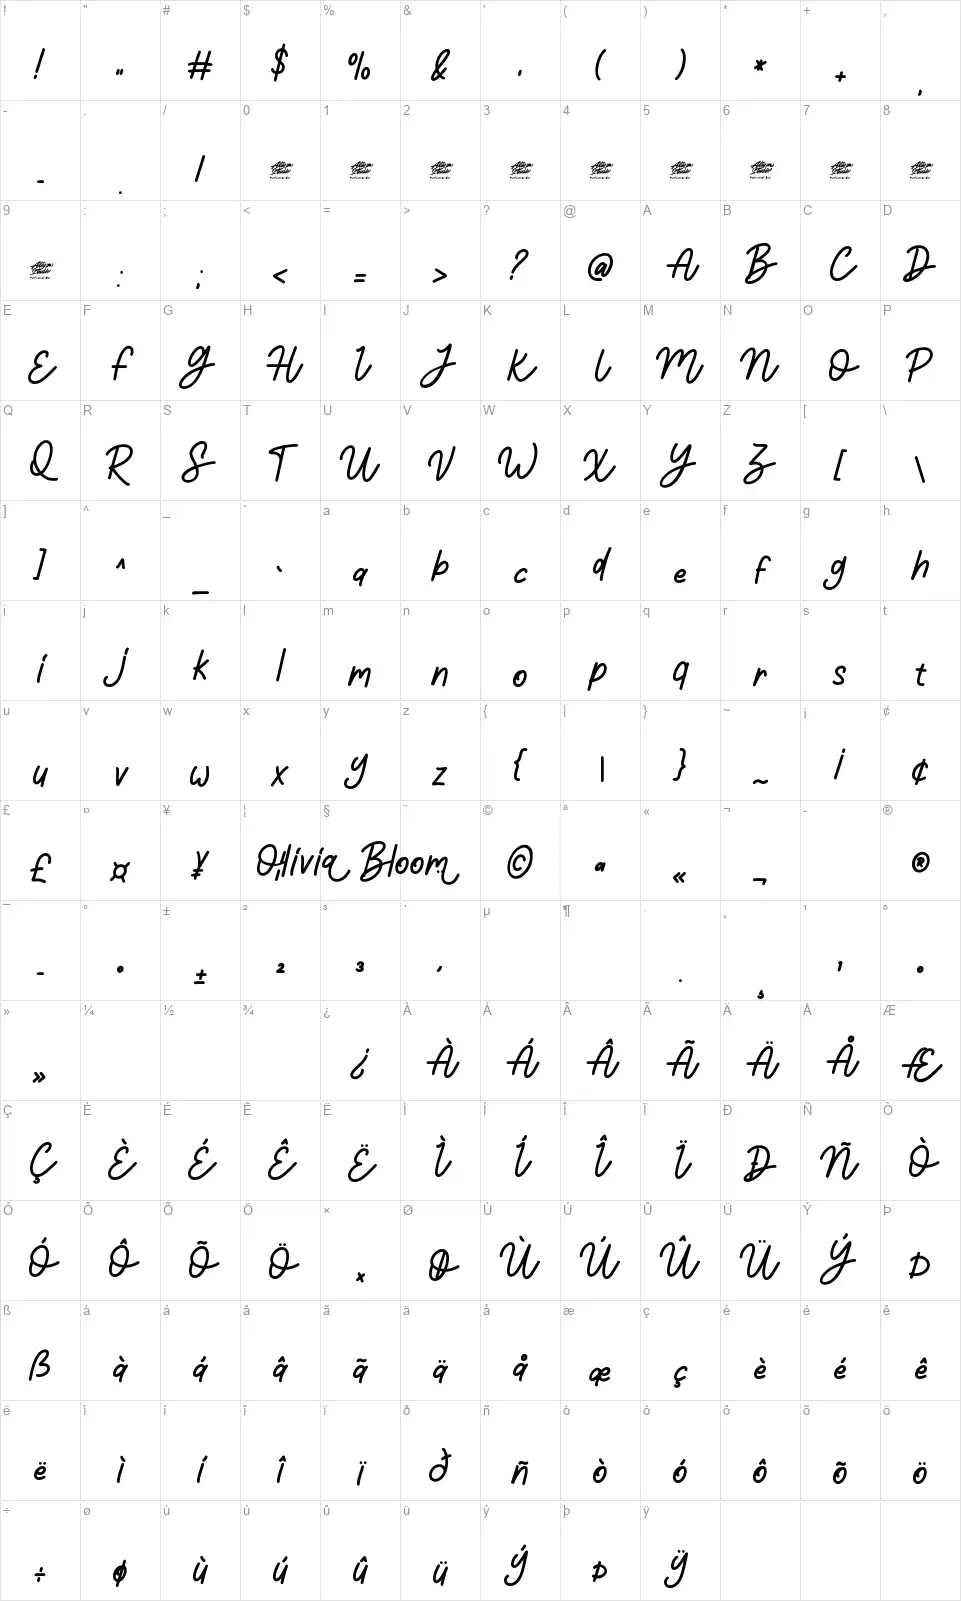 ! " # $ % & ' ( ) * + ,
! " # $ % & ' ( ) * + ,
- . / 0 1 2 3 4 5 6 7 8
- . /
9 : ; < = > ? @ A B C D
: ; < = > ? @ A B C D
E F G H I J K L M N O P
E F G H I J K L M N O P
Q R S T U V W X Y Z [ \
Q R S T U V W X Y Z [ \
] ^ _ ` a b c d e f g h
] ^ _ ` a b c d e f g h
i j k l m n o p q r s t
i j k l m n o p q r s t
u v w x y z { | } ~ ¡ ¢
u v w x y z { | } ~ ¡ ¢
£ ¤ ¥ ¦ § ¨ © ª « ¬ - ®
£ ¤ ¥ ¦ Olivia Bloom ¨ © ª « ¬ ®
¯ ° ± ² ³ ´ µ ¶ · ¸ ¹ º
¯ ° ± ² ³ ´ · ¸ ¹ º
» ¼ ½ ¾ ¿ À Á Â Ã Ä Å Æ
» ¿ À Á Â Ã Ä Å Æ
Ç È É Ê Ë Ì Í Î Ï Ð Ñ Ò
Ç È É Ê Ë Ì Í Î Ï Ð Ñ Ò
Ó Ô Õ Ö × Ø Ù Ú Û Ü Ý Þ
Ó Ô Õ Ö × Ø Ù Ú Û Ü Ý Þ
ß à á â ã ä å æ ç è é ê
ß à á â ã ä å æ ç è é ê
ë ì í î ï ð ñ ò ó ô õ ö
ë ì í î ï ð ñ ò ó ô õ ö
÷ ø ù ú û ü ý þ ÿ
÷ ø ù ú û ü ý þ ÿ